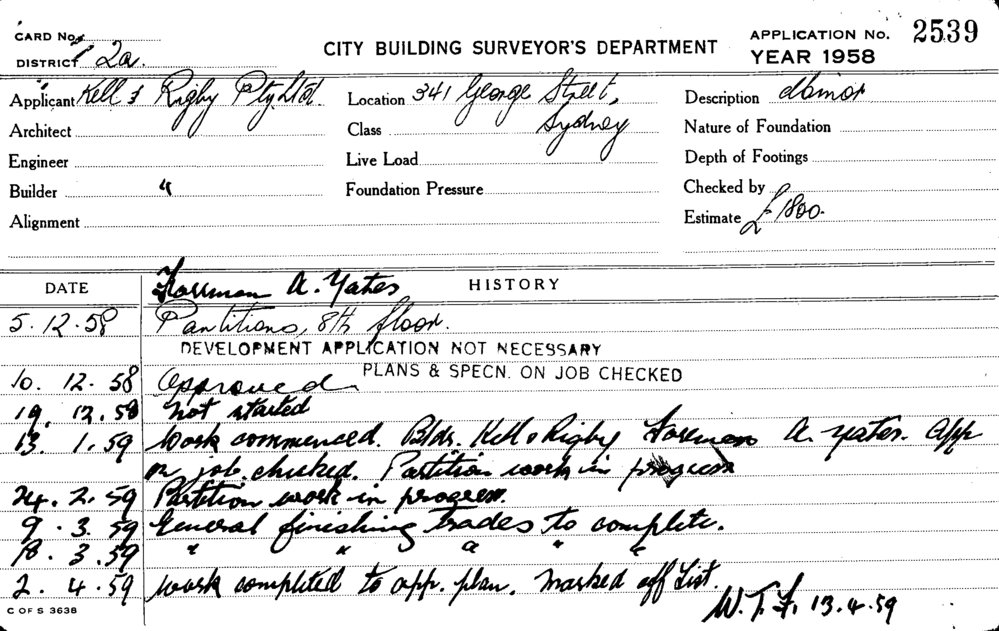 CARD No.
DISTRICT 2a.
CITY BUILDING SURVEYOR'S DEPARTMENT
APPLICATION No. 2539
YEAR 1958
Applicant Kell & Rigby Pty Ltd.
Location 341 George Street, Sydney
Description Minor
Architect
Class
Nature of Foundation
Engineer
Live Load
Depth of Footings
Builder "
Foundation Pressure
Checked by
Alignment
Estimate £1800.
DATE
Foreman A. Yates
HISTORY
5.12.58 Partitions, 8th floor.
DEVELOPMENT APPLICATION NOT NECESSARY
PLANS & SPECN. ON JOB CHECKED
10. 12. 58 Approved
19. 12. 58 Not started
13. 1. 59 Work commenced. Bldrs. Kell & Rigby Foreman A. Yates. App
on job checked. Partition work in progress
24. 2. 59 Partition work in progress.
9. 3. 59 General finishing trades to complete.
18. 3. 59 " " " " "
2. 4. 59 Work completed to app. plan. Marked off List.
C OF S 3638
W.T.F. 13.4.59